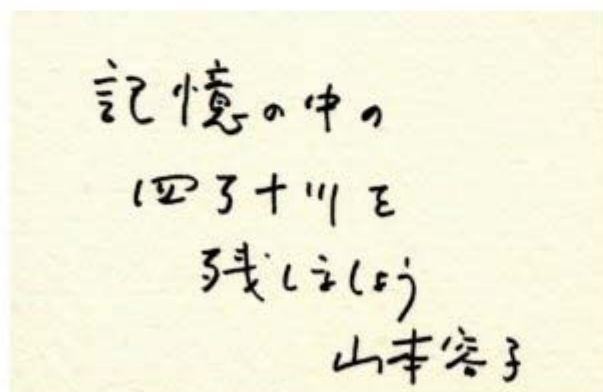 記憶の中の
四万十川を
残しましょう
山本容子